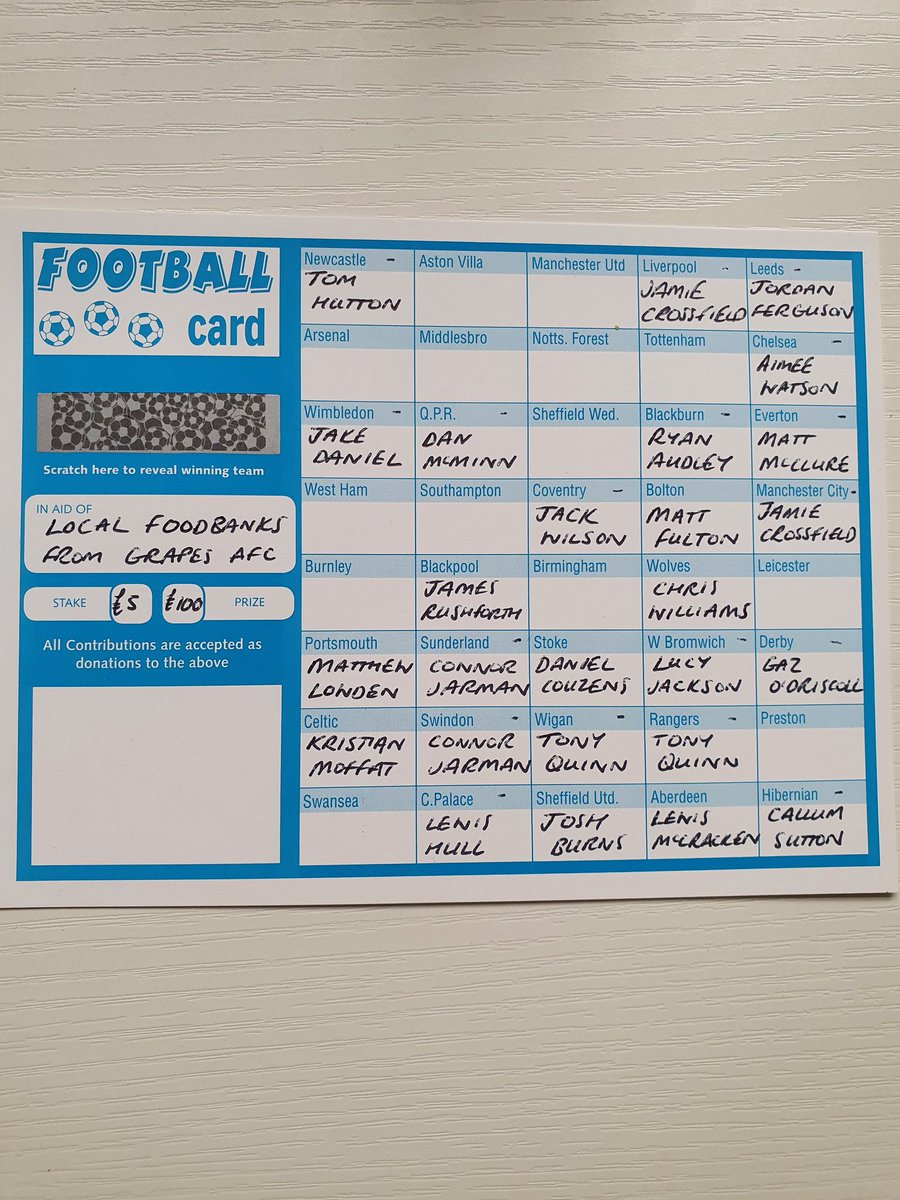 FOOTBALL
card
Scratch here to reveal winning team
IN AID OF
LOCAL FOODBANKS
FROM GRAPES AFC
STAKE £5 £100 PRIZE
All Contributions are accepted as
donations to the above
Newcastle - Aston Villa Manchester Utd Liverpool - Leeds -
TOM JAMIE JORDAN
HUTTON CROSSFIELD FERGUSON
Arsenal Middlesbro Notts. Forest Tottenham Chelsea -
AIMEE
WATSON
Wimbledon - Q.P.R. - Sheffield Wed. Blackburn - Everton -
JAKE DAN RYAN MATT
DANIEL MCMINN AUDLEY MCCLURE
West Ham Southampton Coventry - Bolton Manchester City -
JACK MATT JAMIE
WILSON FULTON CROSSFIELD
Burnley Blackpool Birmingham Wolves Leicester
JAMES CHRIS
RUSHFORTH WILLIAMS
Portsmouth Sunderland - Stoke W Bromwich - Derby -
MATTHEW CONNOR DANIEL LUCY GAZ
LONDEN JARMAN COUZENS JACKSON O'DRISCOLL
Celtic Swindon - Wigan - Rangers - Preston
KRISTIAN CONNOR TONY TONY
MOFFAT JARMAN QUINN QUINN
Swansea C.Palace - Sheffield Utd. Aberdeen Hibernian -
LEWIS JOSH LEWIS CALLUM
HULL BURNS MCCRACKEN SUTTON